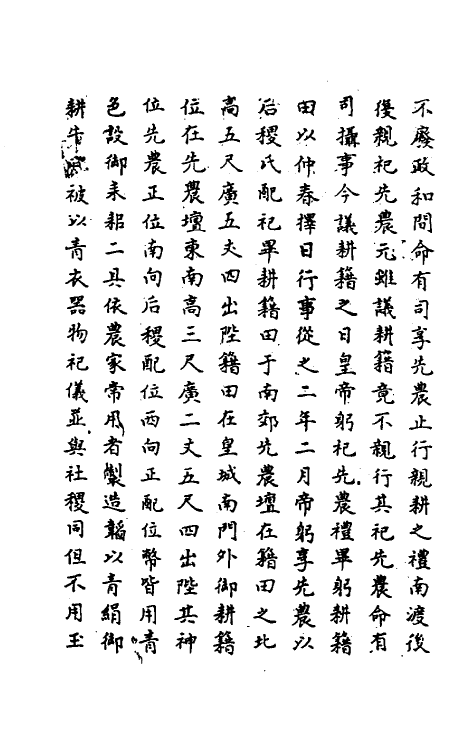 不廢政和間命有司享先農止行親耕之禮南渡後
復親祀先農元雖議耕籍竟不親行其祀先農命有
司攝事今議耕籍之日皇帝躬祀先農禮畢躬耕籍
田以仲春擇日行事從之二年二月帝躬享先農以
后稷氏配祀畢耕籍田于南郊先農壇在籍田之北
高五尺廣五丈四出陛籍田在皇城南門外御耕籍
位在先農壇東南高三尺廣二丈五尺四出陛其神
位先農正位南向后稷配位西向正配位幣皆用青
色設御耒耜二具依農家常用者製造韜以青絹御
耕牛四被以青衣器物祀儀並與社稷同但不用玉